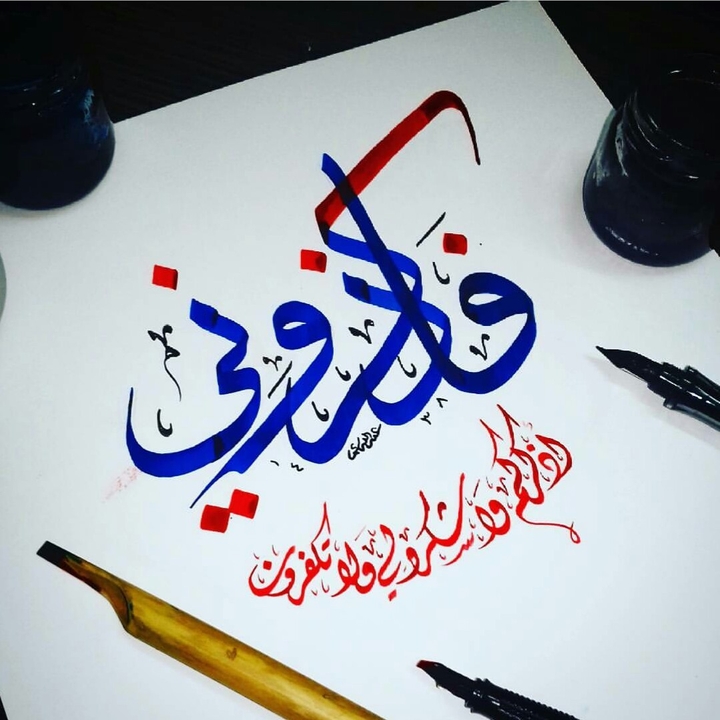 فاذكروني
اذكركم واشكروا لي ولا تكفرون
١٤٣٨